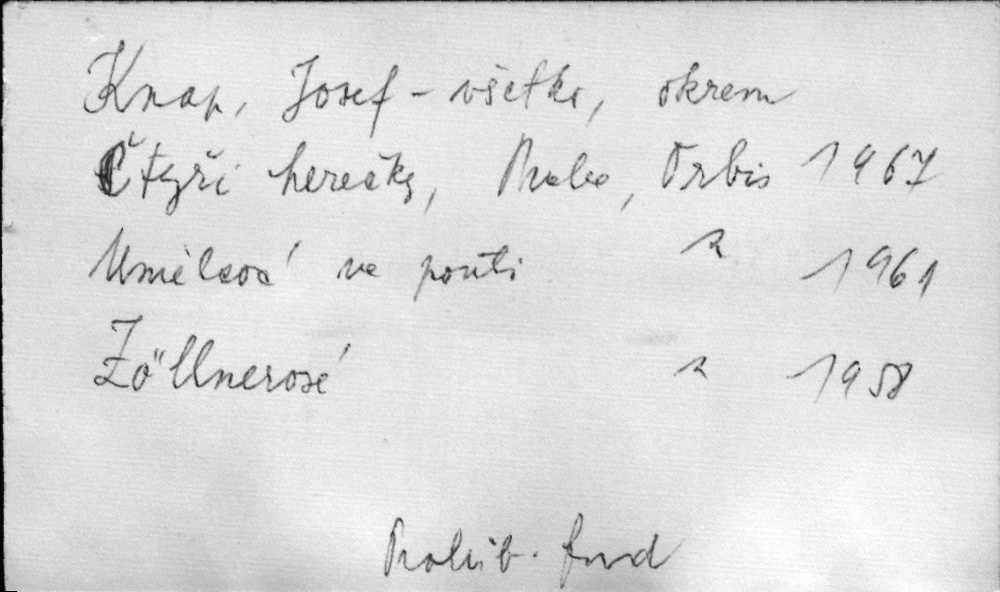 Knap, Josef - všetko, okrem
Čtyři herečky, Praha, Orbis 1967
Umělcové na pouti " 1961
Zöllnerové " 1958
Prohib. fond